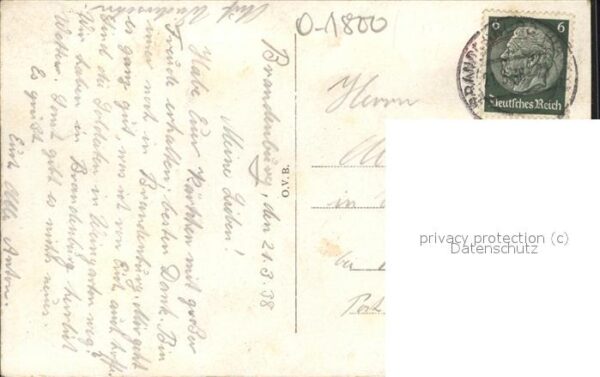 Brandenburg, den 21.3.38
Meine Lieben!
Habe Eur Kärtchen mit großer
Freude erhalten, besten Dank. Bin
immer noch in Brandenburg. Mir geht
es ganz gut, was ich von Euch auch hoffe.
Sind die Soldaten in Weingarten weg?
Wir haben in Brandenburg herrlich
Wetter. Sonst geht es nichts neues.
Es grüßt
Euch Alle Anton.
Auf Wiedersehen!
O-1800
6
Deutsches Reich
BRAND
Herrn
in
Post
O.V.B.
privacy protection (c)
Datenschutz